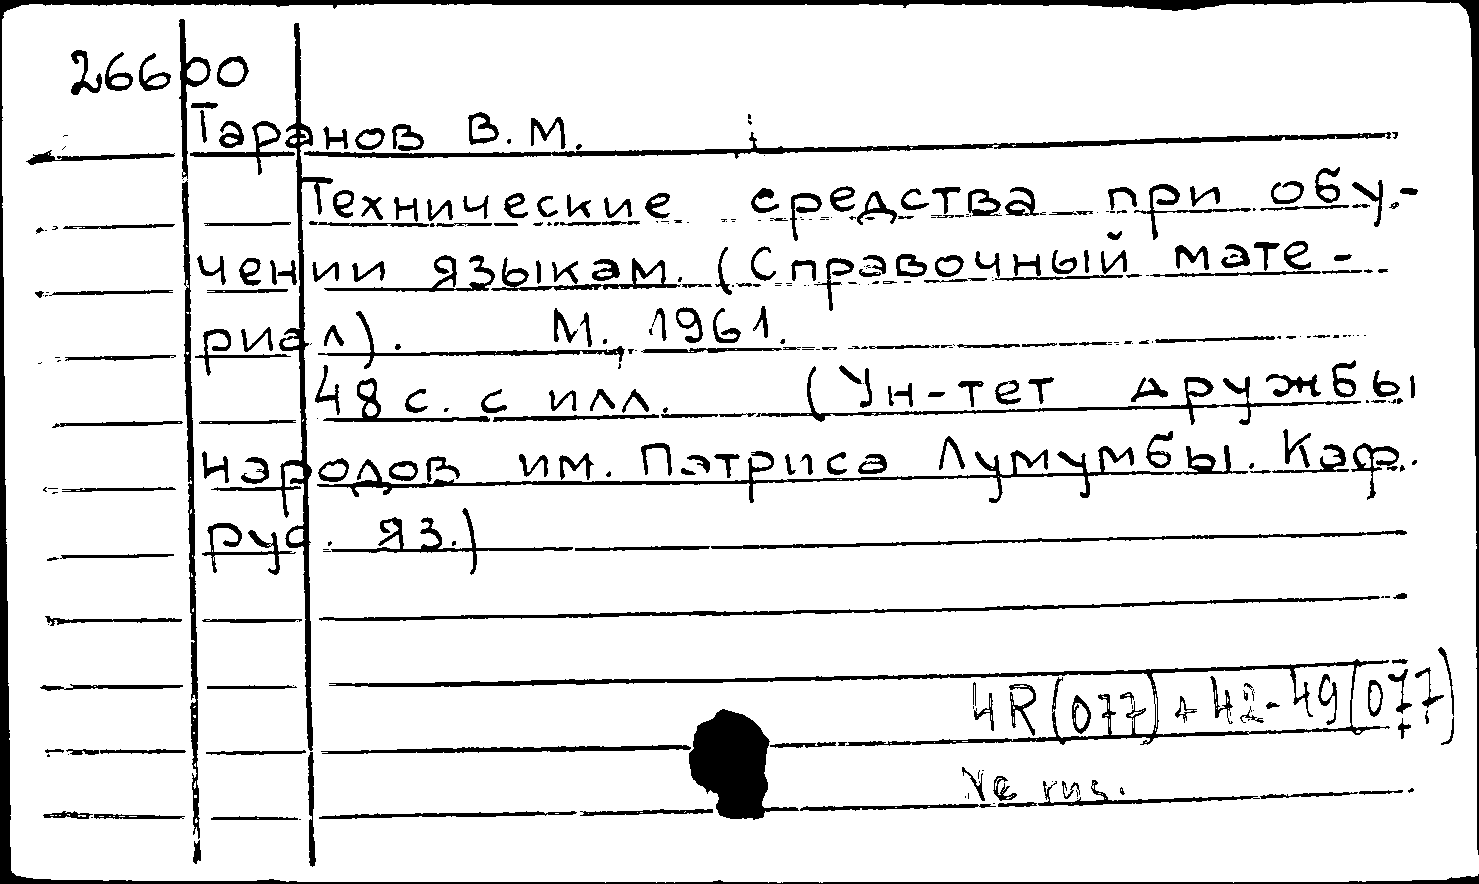 26600
Таранов В.М.
Технические средства при обу-
чении языкам. (Справочный мате-
риал). М., 1961.
48 с. с илл. (Ун-тет дружбы
народов им. Патриса Лумумбы. Каф.
рус. яз.)
4R(077)+42-49(077)
Ve rus.